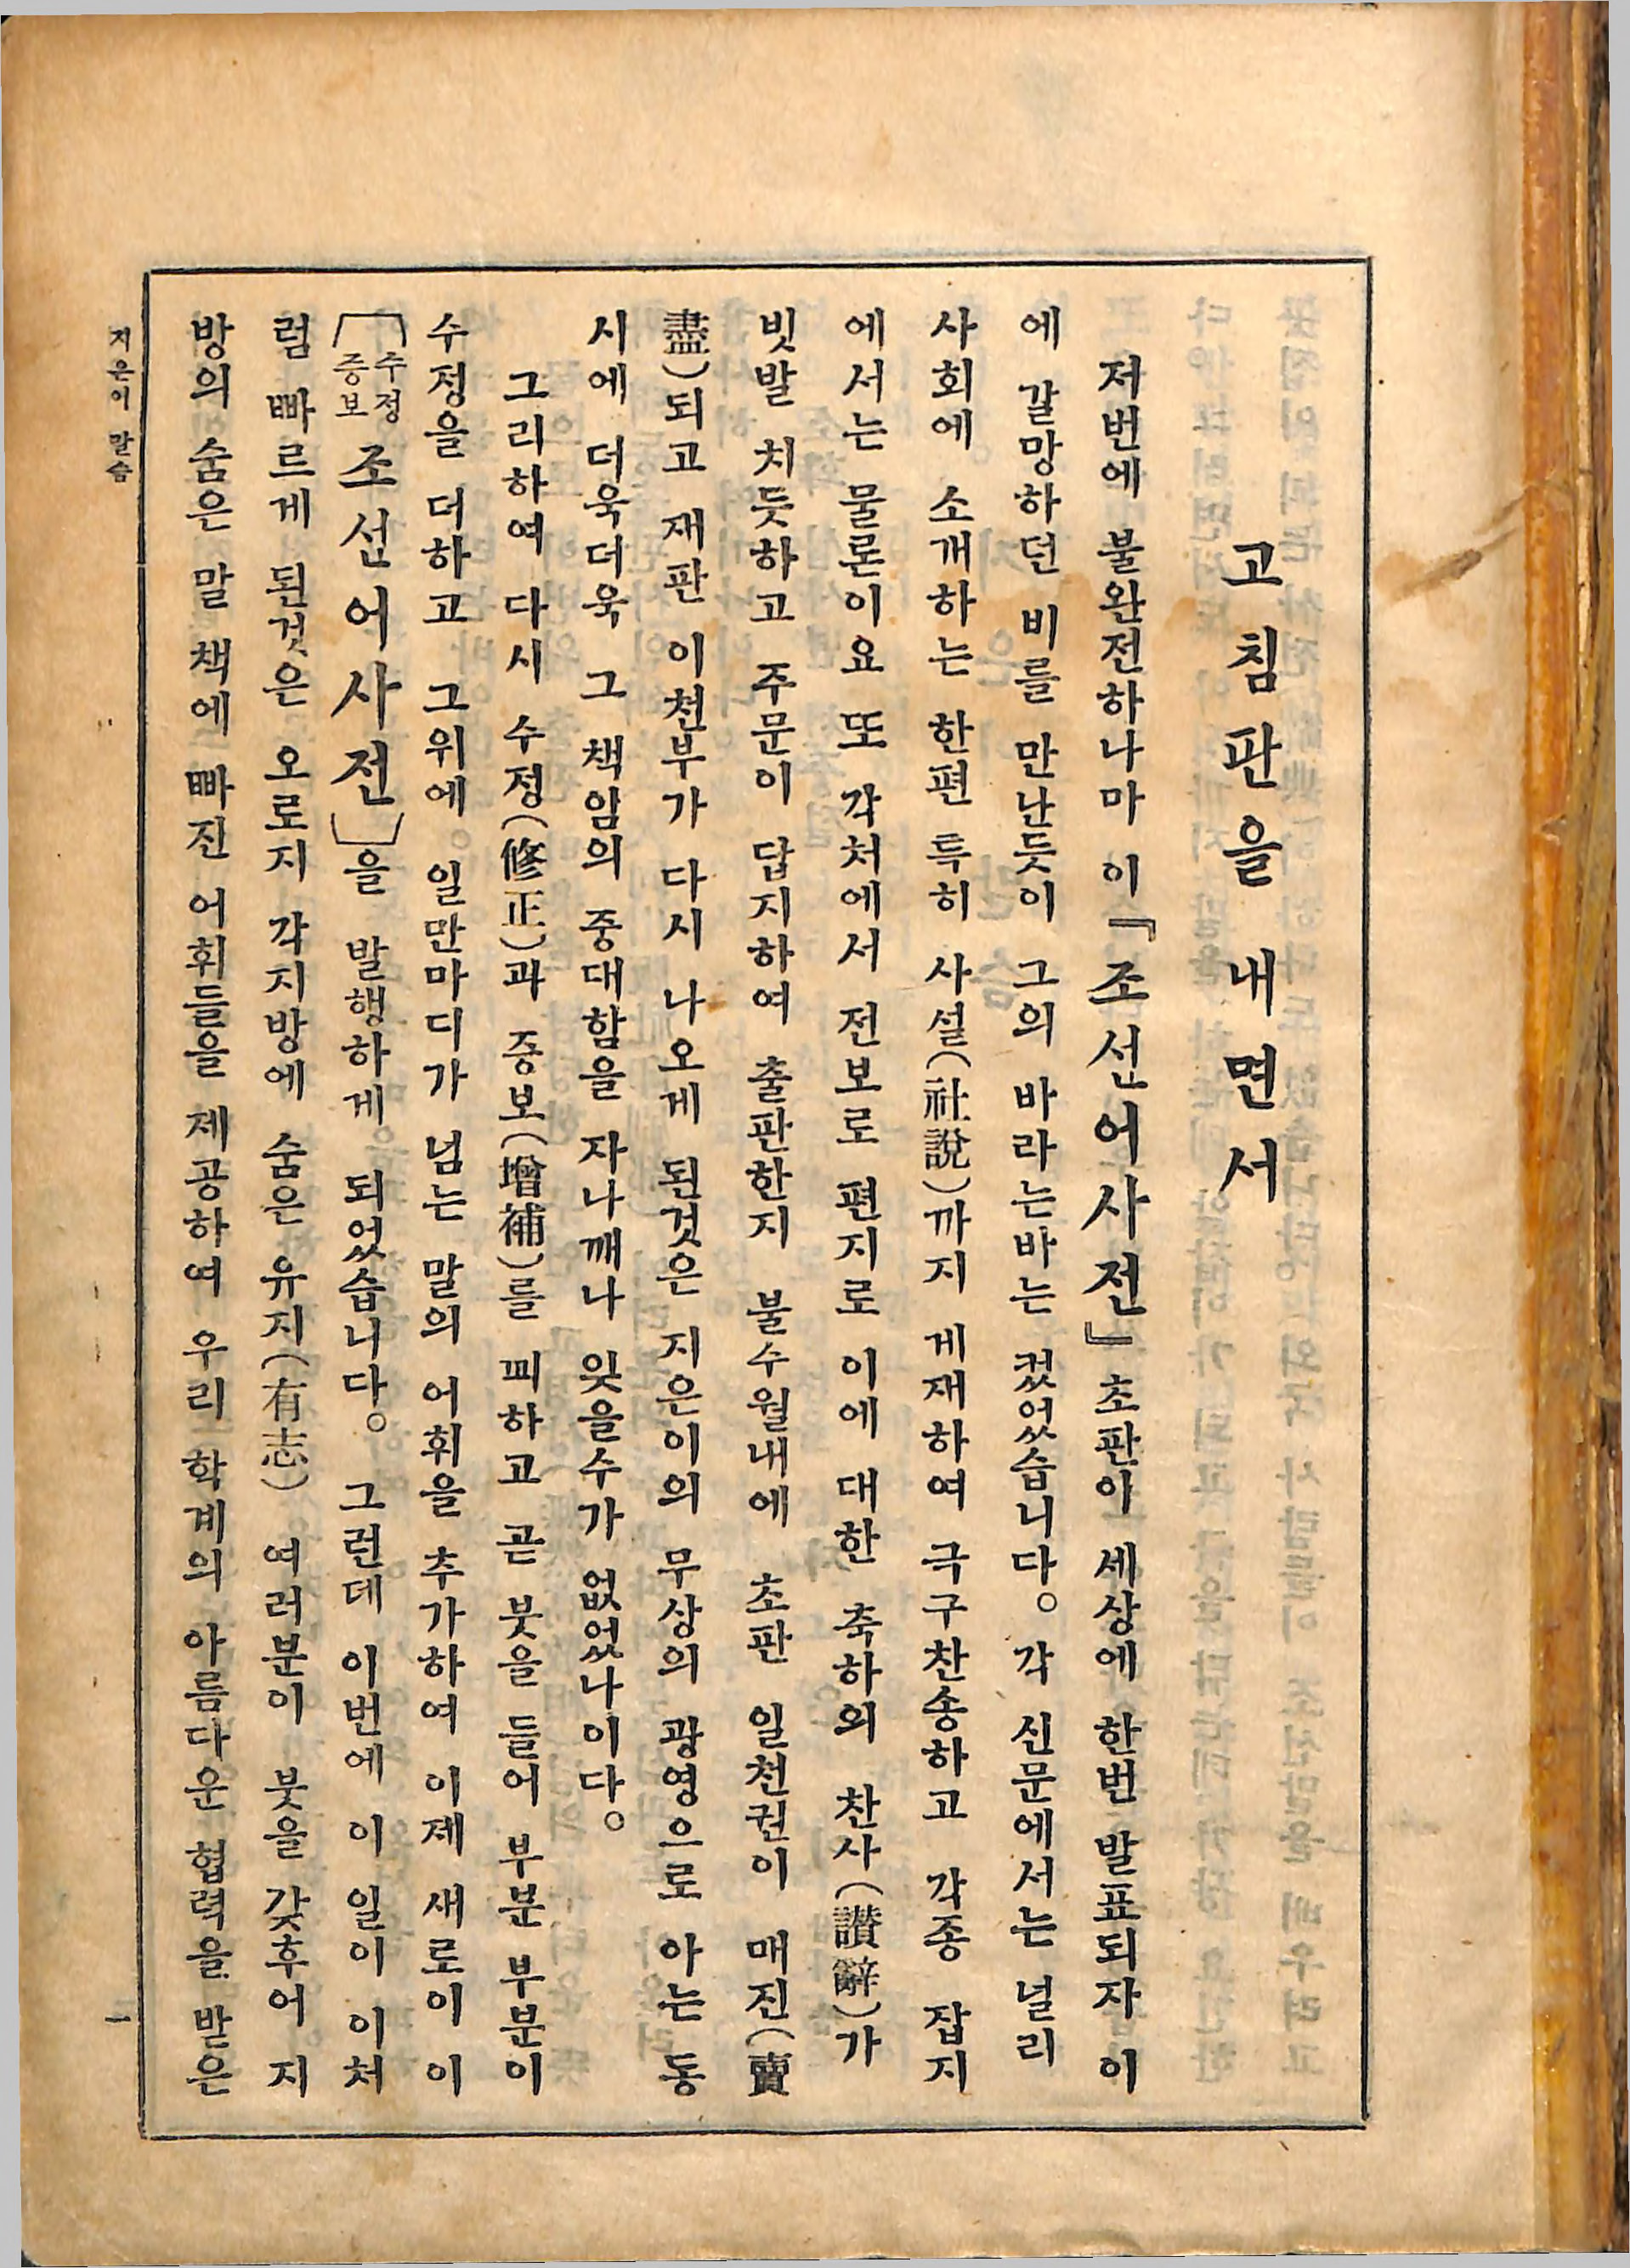 고침판을 내면서
저번에 불완전하나마 이『조선어사전』초판이 세상에 한번 발표되자 이
에 갈망하던 비를 만난듯이 그의 바라는바는 컸었습니다。각 신문에서는 널리
사회에 소개하는 한편 특히 사설(社說)까지 게재하여 극구찬송하고 각종 잡지
에서는 물론이요 또 각처에서 전보로 편지로 이에 대한 축하의 찬사(讃辭)가
빗발 치듯하고 주문이 답지하여 출판한지 불수월내에 초판 일천권이 매진(賣
盡)되고 재판 이천부가 다시 나오게 된것은 지은이의 무상의 광영으로 아는 동
시에 더욱더욱 그 책임의 중대함을 자나깨나 잊을수가 없었나이다。
그리하여 다시 수정(修正)과 증보(增補)를 피하고 곧 붓을 들어 부분 부분이
수정을 더하고 그위에 일만마디가 넘는 말의 어휘을 추가하여 이제 새로이 이
〔수정증보 조선어사전〕을 발행하게 되었습니다。 그런데 이번에 이 일이 이처
럼 빠르게 된것은 오로지 각지방에 숨은 유지(有志) 여러분이 붓을 갖후어 지
방의 숨은 말 책에 빠진 어휘들을 제공하여 우리 학계의 아름다운 협력을 받은
지은이 말슴
一